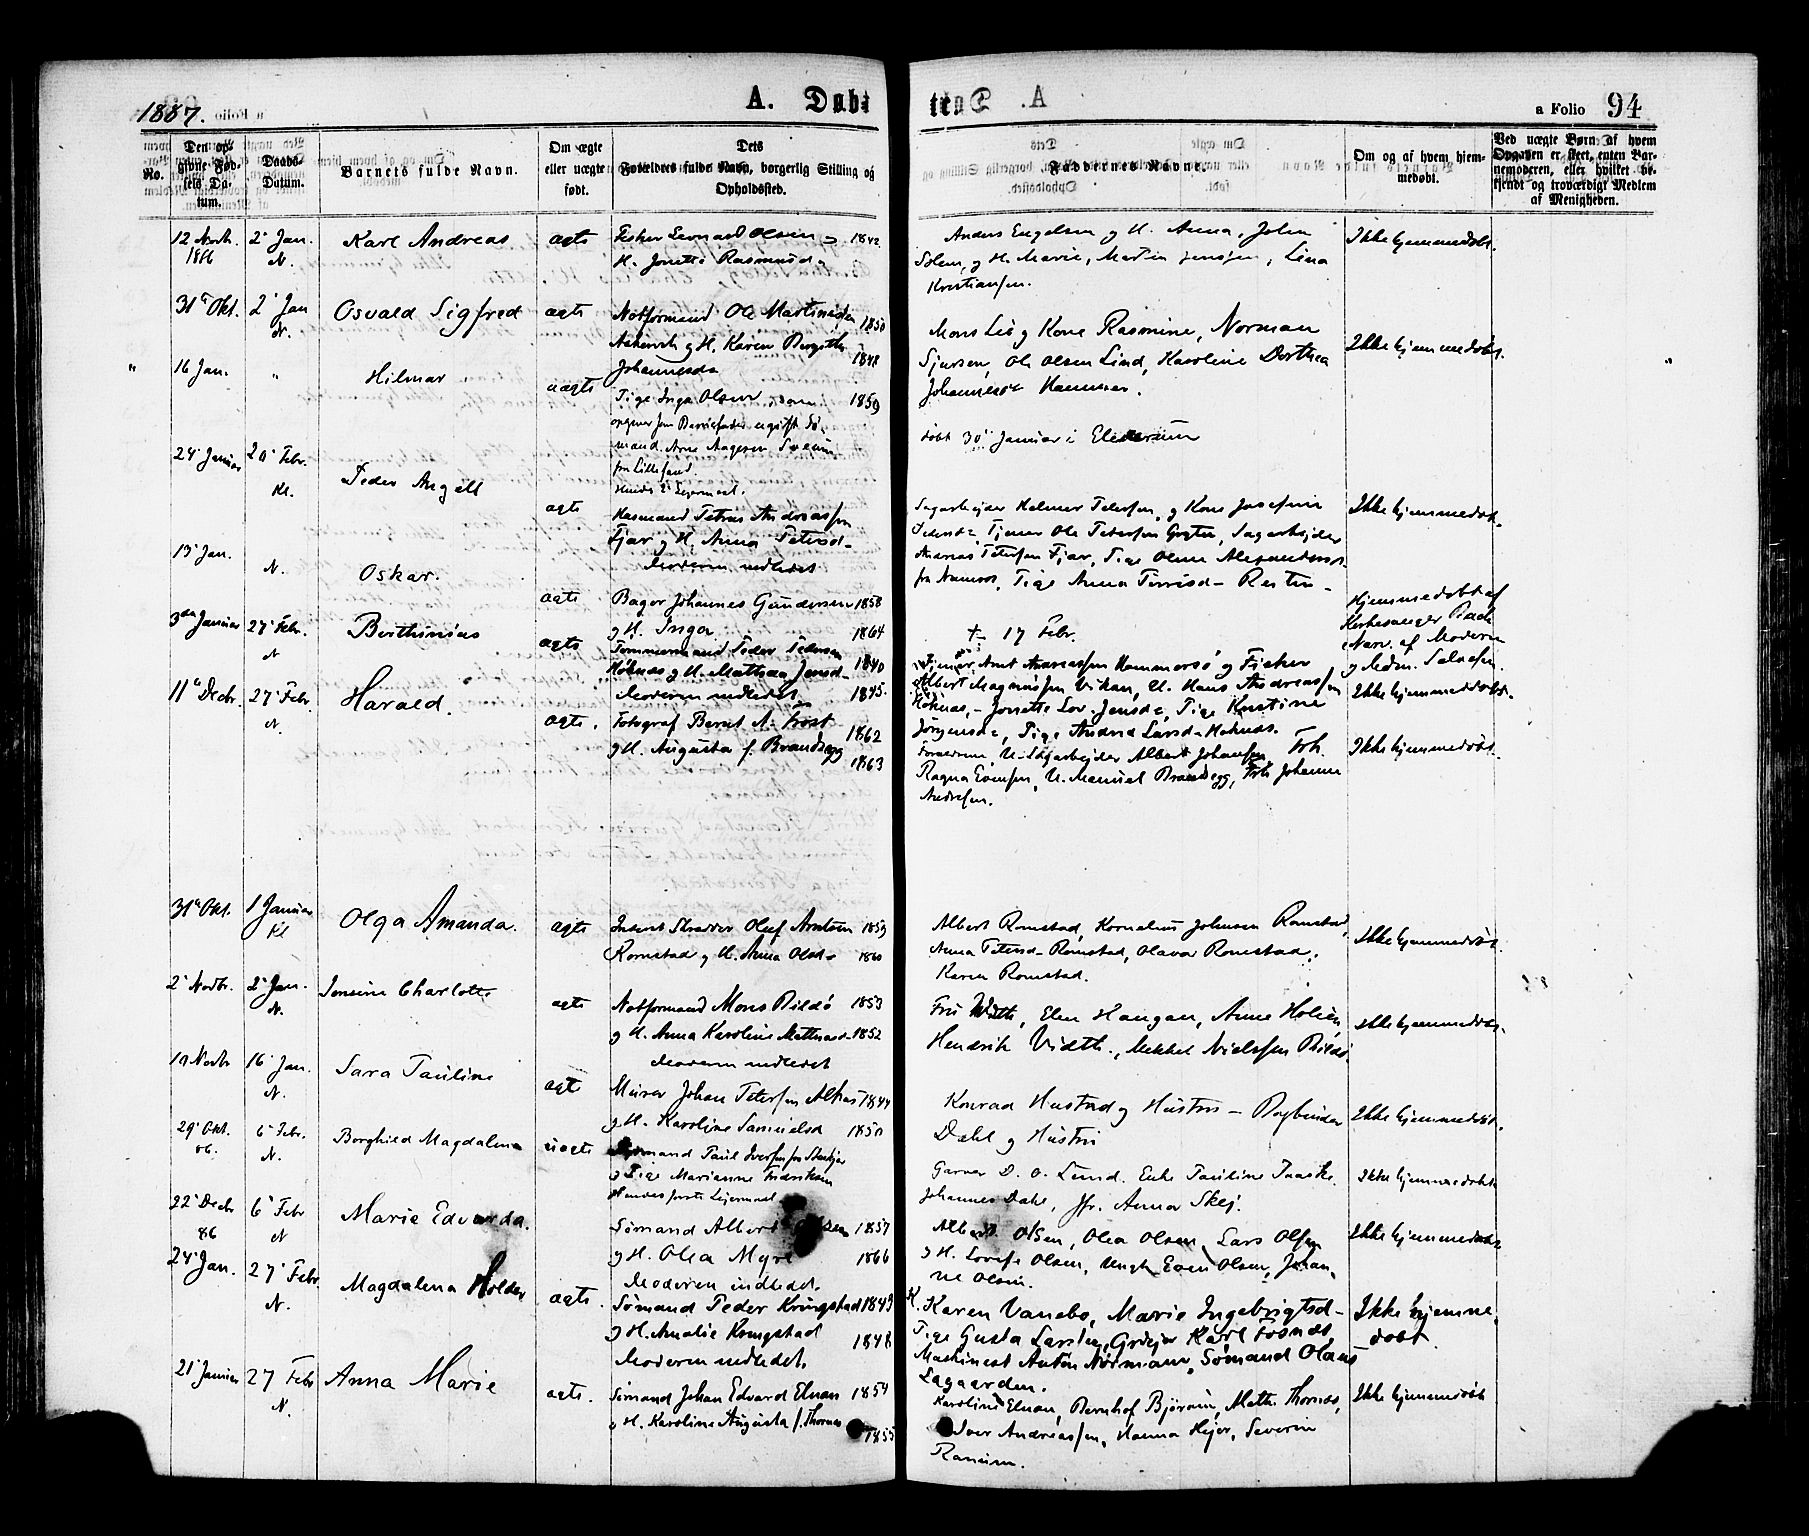 1887.
A. Døbte
a Folio 94
No.
Den opgivne Fødsels Datum.
Daabs-Datum.
Barnets fulde Navn.
Om ægte eller uægte født.
Dets Forældres fulde Navn, borgerlig Stilling og Opholdssted.
Faddernes Navne.
Om og af hvem hjemmedøbt.
Ved uægte Børn af hvem Opgaven er skeet, enten Barnemoderen, eller hvilket bekjendt og troværdigt Medlem af Menigheden.
12 Novbr. 1886
2 Jan. N.
Karl Andreas
ægte
Fisker Leonard Olsen 1842
H. Jonette Rasmusd.
Anders Engelsen og H. Anna, Johan
Solem, og H. Marie, Martin Jensen, Lina
Kristiansen.
Ikke hjemmedøbt.
31 Okt.
2 Jan N.
Osvald Sigfred
ægte
Notformand Ole Martinussen 1850
og H. Karen Bergitte 1848
Johannesd.
Mons Lie og Kone Rasmine, Norman
Sjursen, Ole Olsen Lind, Karoline Dorthea
Johannesd. Hammer.
Ikke hjemmedøbt.
16 Jan.
"
Hilmar
uægte
Pige Inga Olsen 1859
fra Lillesand.
døbt 30 Januar i
24 Januar
20 Febr. Kl.
Peder Angell
ægte
Husmand Petrus Andreassen
Fjær og H. Anna Petersd.
Moderen indledet
Sagarbejder Helmer Petersen, og Kone Josefine
Pedersd., Tjener Ole Petersen, Sagarbejder
Andreas Petersen Fjær, Pige Oline Alexandersd.
fra Namsos, Pige Anna
Ikke hjemmedøbt.
13 Jan.
N.
Oskar.
ægte
Bager Johannes Gundersen 1858
og H. Inga 1864
† 17 Febr.
Hjemmedøbt af
Kirkesanger
Nærv. af Moderen
og
3 Januar
27 Febr. N
Berthinius
ægte
Tømmermand Peder Pedersen 1840
Høknes og H. Mathea Jensd. 1845.
Moderen indledet
Tjener Arnt Andreassen Hammersø og Fisker
Albert Magnussen Vikan, U. Hans Andreassen
Høknes, Jonette Lov. Jensd., Pige Kristine
Jørgensd., Pige Andrea Larsd. Høknes.
Ikke hjemmedøbt.
11 Decbr.
27 Febr. N.
Harald.
ægte.
Fotograf Bernt A. Frost 1862
og H. Augusta f. Brandsegg 1863
Forældrene, U. Sagarbejder Albert Johansen, Frk.
Ragna Evensen, U. Manuel Brandsegg, Frk Johanna
Andresen.
Ikke hjemmedøbt.
31 Okt.
1 Januar Kl
Olga Amanda.
ægte
Inderst Skræder Oluf Arntsen 1859
Romstad og H. Anna Olsd. 1860
Albert Romstad, Kornelius Johnsen Romstad,
Anna Petersd. Romstad, Olava Romstad,
Karen Romstad.
Ikke hjemmedøbt
2 Novbr.
2 Jan. N.
Jensine Charlotte
ægte
Notformand Mons Bildø 1853
og H. Anna Karoline Mathiasd. 1852
Moderen indledet
Fru Width, Elen Haugan, Anne Holien,
Hendrik Vidth, Mekkel Nielssen Bildø
Ikke hjemmedøbt.
19 Novbr
16 Jan. N.
Sara Pauline
ægt
Murer Johan Petersen 1844
og H. Karoline Samuelsd 1850
Konrad Hustad og Hustru – Bogbinder
Dahl og Hustru
Ikke hjemmedøbt.
29 Okt. 86.
6 Febr. N.
Borghild Magdalena
uægte
Sømand Paul Iversen fra Stenkjer
og Pige Marianne Fredriksen
Hendes første Leiermaal
Garver D. O. Lund. Enke Pauline
Johannes Dahl, Jfr. Anna Skej.
Ikke hjemmedøbt
22 Decbr 86
6 Febr N
Marie Edvarda.
Sømand Albert Olsen 1857
og H. Olea Myre 1866
Moderen indledet.
Albert Olsen, Olea Olsen, Lars Olsen
og H. Lovise Olsen, Ungk. Even Olsen, Johanne Olsen.
Ikke hjemmedøbt
24 Jan.
27 Febr. N.
Magdalena Holder
ægte.
Sømand Peder Kringstad 1843
og H. Amalie Kringstad 1848
Moderen indledet.
K. Karen Vanebo, Marie Ingebrigtsd.
Pige Gusta Larsen, Grdejer Karl Fosnæs,
Machinest Anton Normann, Sømand Olaus
Lagaarden.
Ikke hjemmedøbt.
21 Januar
27 Febr N.
Anna Marie
ægte.
Sømand Johan Edvard Elnan 1854
og H. Karoline Augusta f. Thornes 1855
Karoline Elnan, Bernhof Bjørum, Meth. Thornes,
Iver Andreassen, Hanna Hejer, Severin
Ranum.
Ikke hjemmedøbt